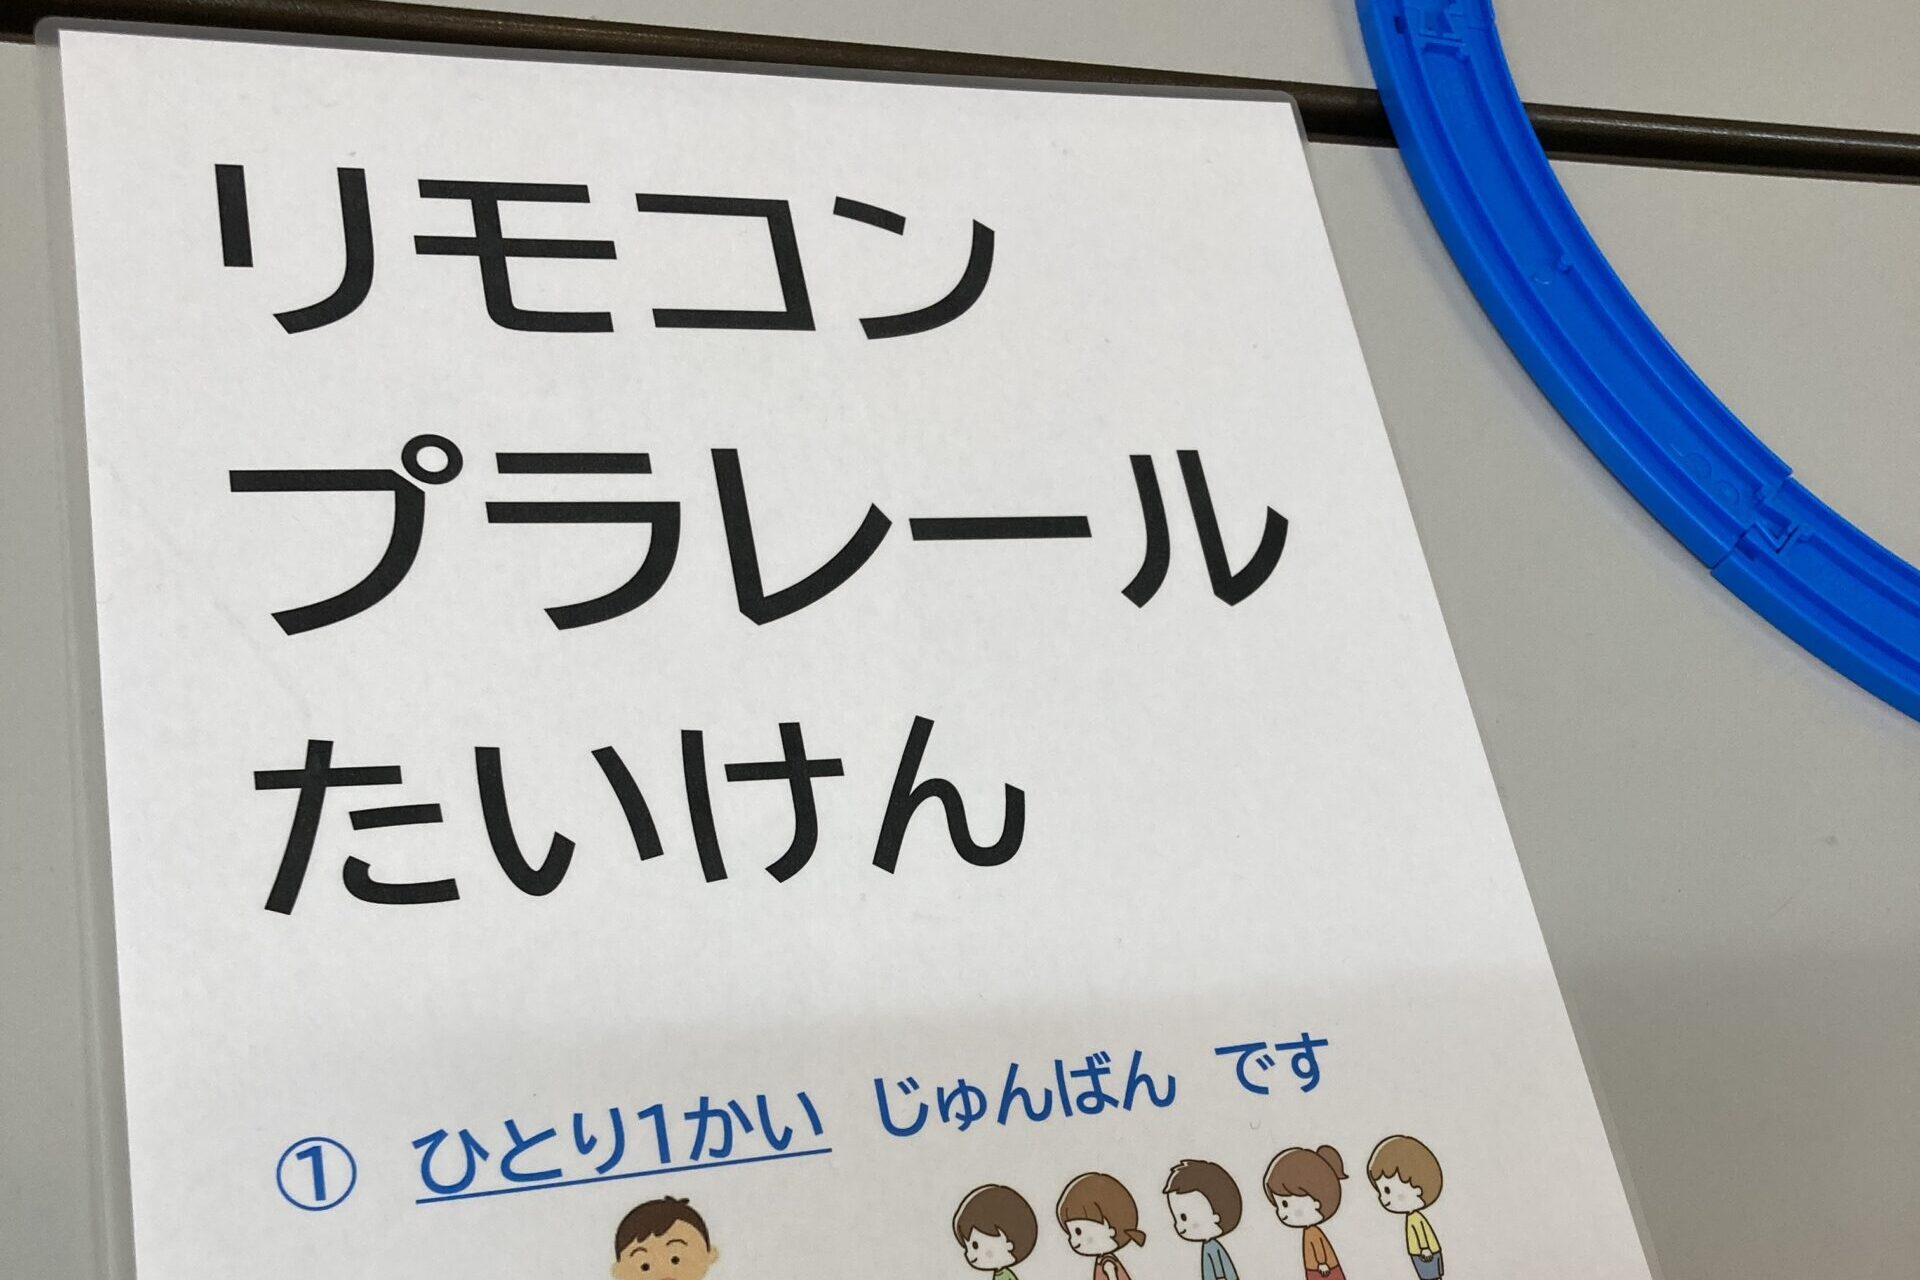 リモコン
プラレール
たいけん
① ひとり1かい じゅんばん です